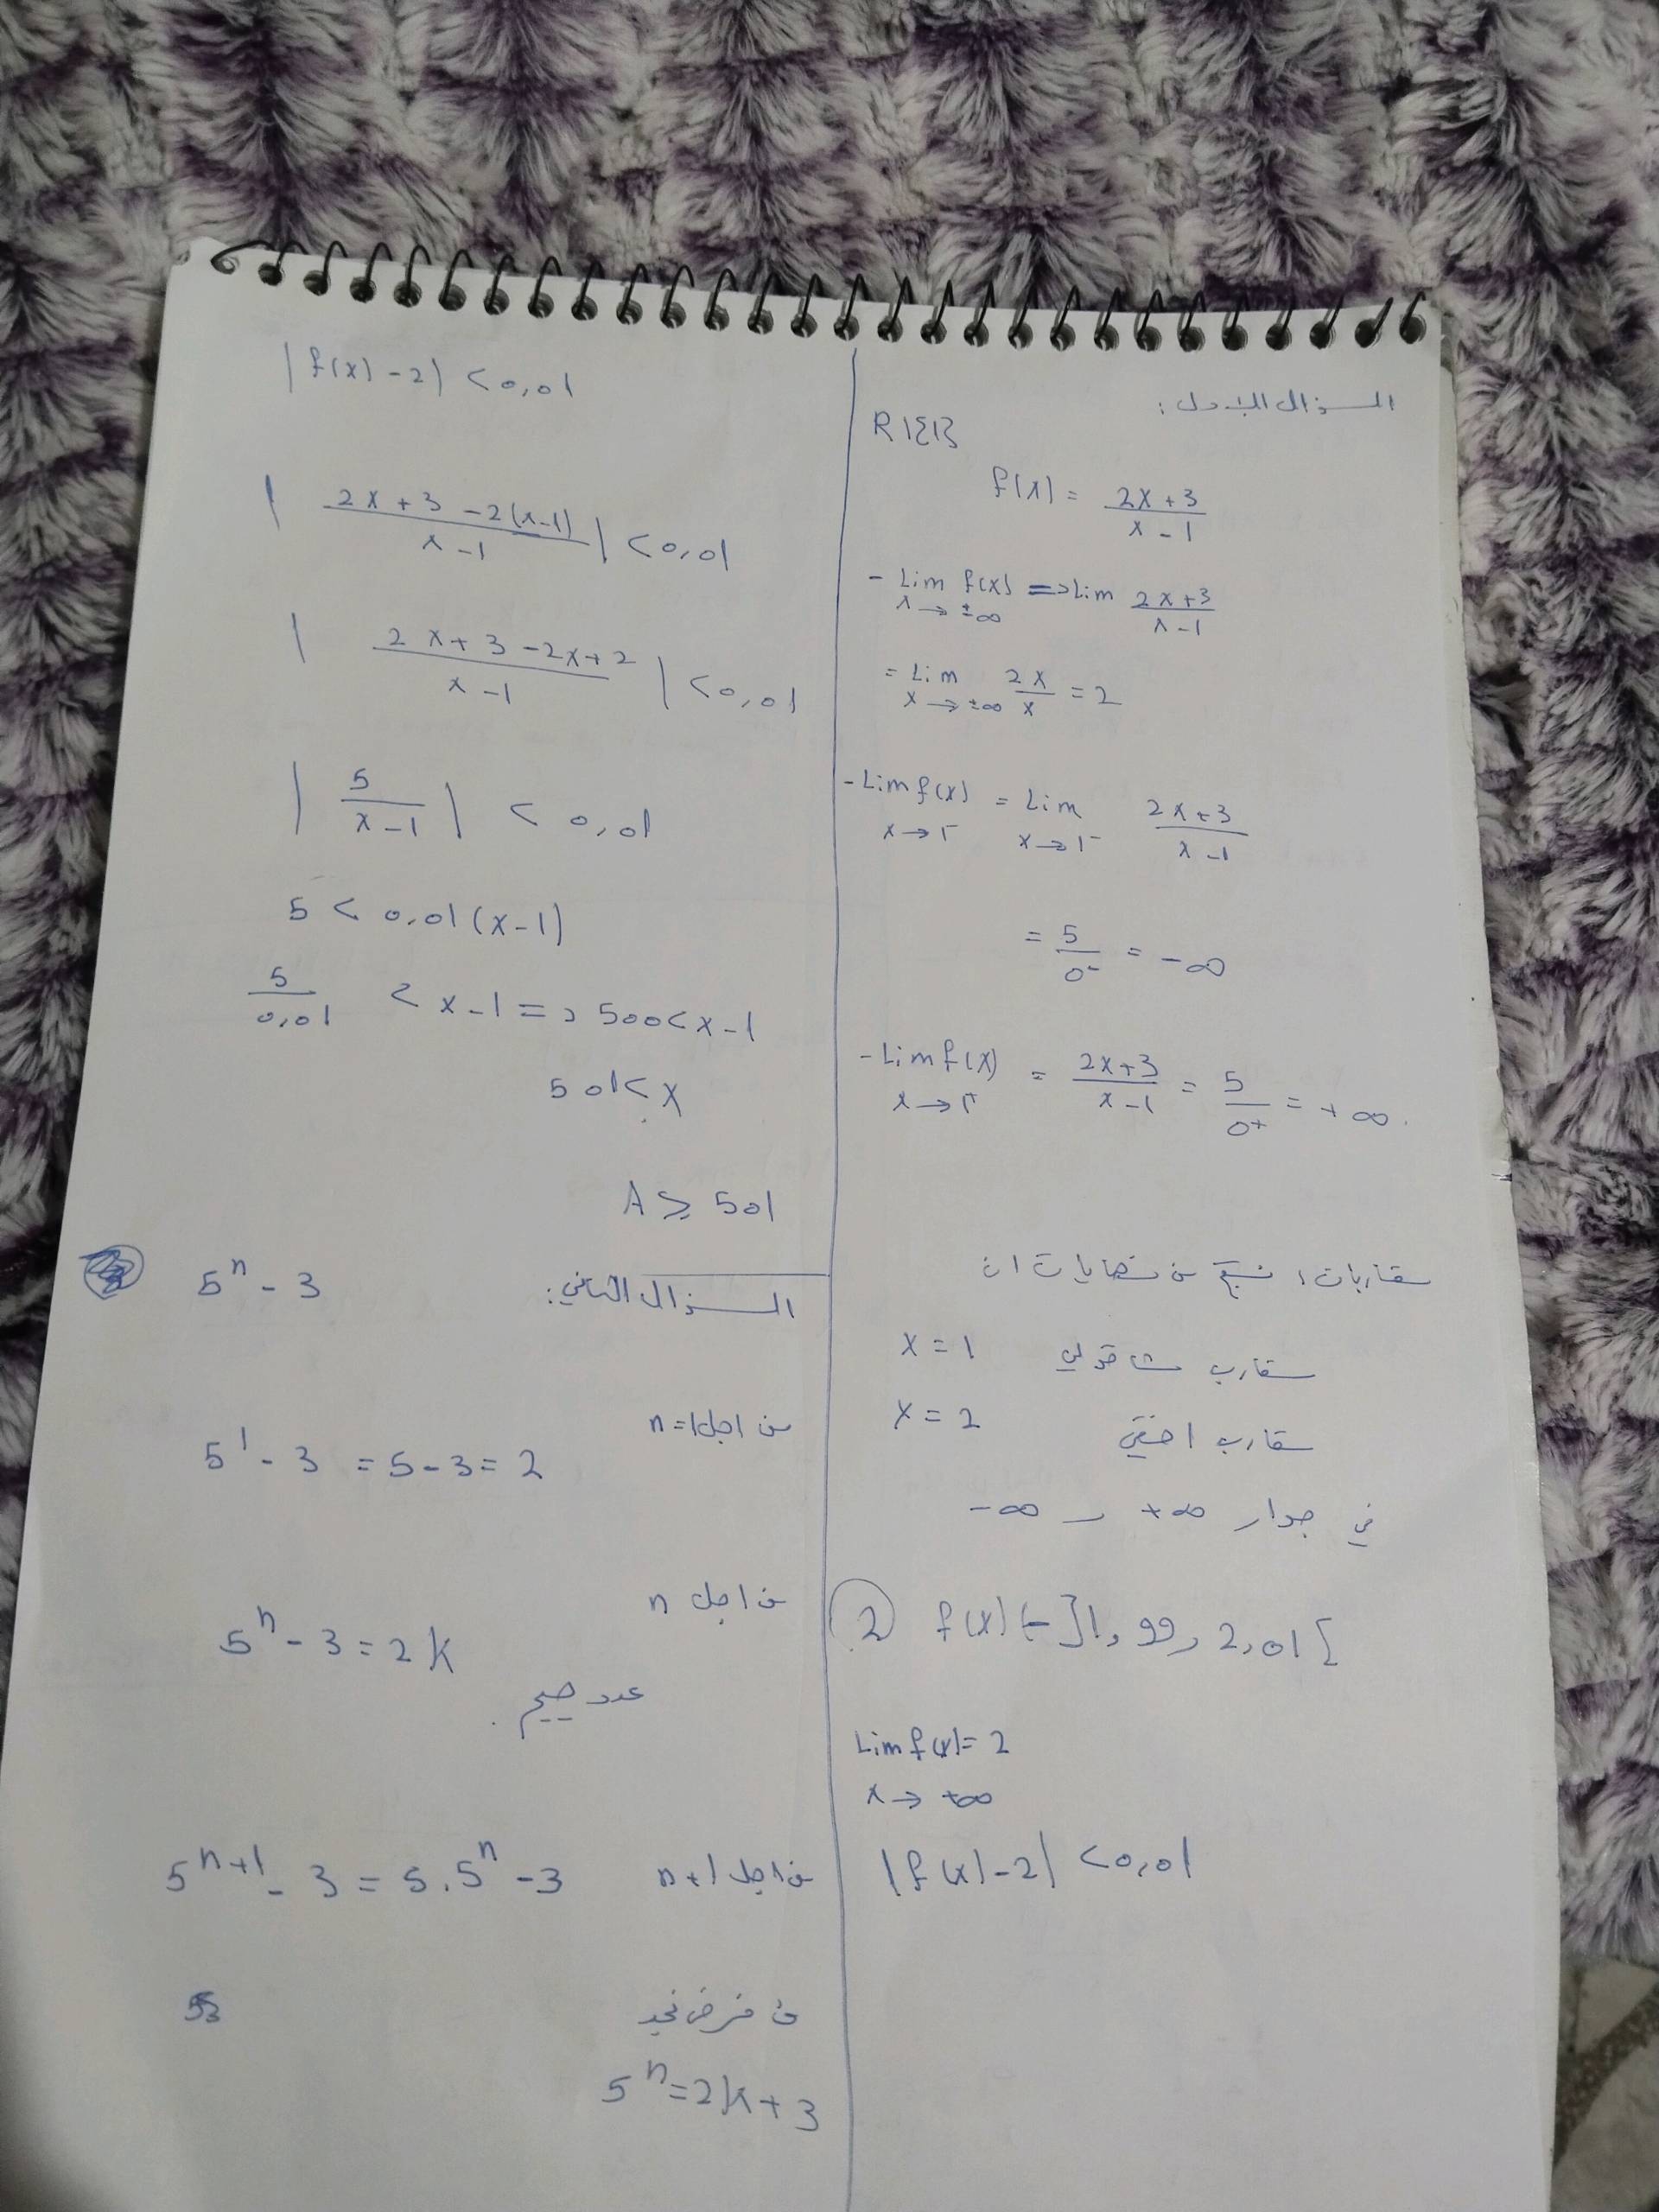 السؤال الاول:
R\{1}
f(x) = (2x+3)/(x-1)
- Lim x→±∞ f(x) => Lim (2x+3)/(x-1)
= Lim x→±∞ 2x/x = 2
- Lim x→1⁻ f(x) = Lim x→1⁻ (2x+3)/(x-1)
= 5/0⁻ = -∞
- Lim x→1⁺ f(x) = (2x+3)/(x-1) = 5/0⁺ = +∞.
مقاربات: نستنتج من نهايات ان
مقارب شاقولي x = 1
مقارب افقي x = 2
في جوار +∞ و -∞
2 f(x) ∈ ]1,99, 2,01[
Lim x→+∞ f(x) = 2
|f(x)-2| < 0,01
|f(x)-2| < 0,01
|(2x+3-2(x-1))/(x-1)| < 0,01
|(2x+3-2x+2)/(x-1)| < 0,01
|5/(x-1)| < 0,01
5 < 0,01(x-1)
5/0,01 < x-1 => 500 < x-1
501 < x
A ≥ 501
السؤال الثاني: 5ⁿ - 3
من اجل n=1
5¹ - 3 = 5 - 3 = 2
من اجل n
5ⁿ - 3 = 2k
عدد صحيح.
من اجل n+1 5ⁿ⁺¹ - 3 = 5.5ⁿ - 3
من فرض نجد
5ⁿ = 2k + 3